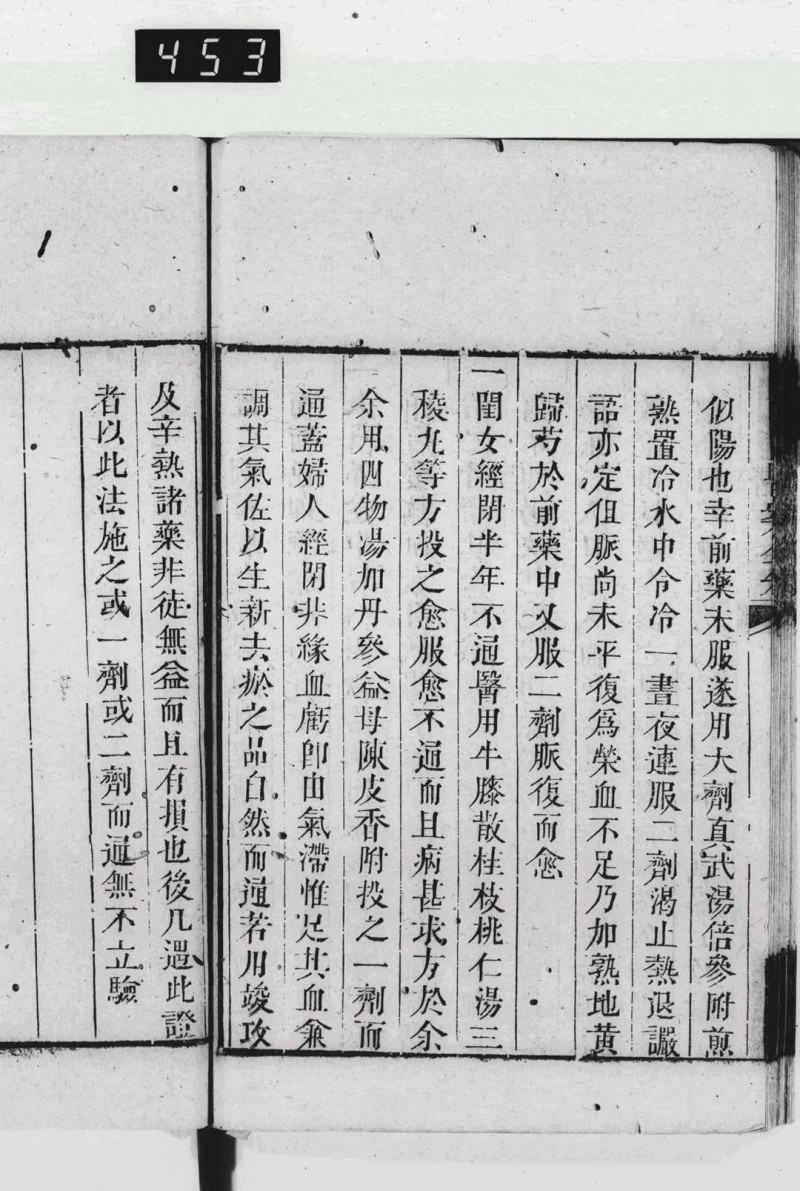 453
似陽也幸前藥未服遂用大劑真武湯倍參附煎
熟置冷水中令冷一晝夜連服二劑渴止熱退讝
語亦定但脈尚未平復爲榮血不足乃加熟地黄
歸芍於前藥中又服二劑脈復而愈
一閨女經閉半年不通醫用牛膝散桂枝桃仁湯三
稜丸等方投之愈服愈不通而且病甚求方於余
余用四物湯加丹參益母陳皮香附投之一劑而
通蓋婦人經閉非緣血虧卽由氣滯惟足其血兼
調其氣佐以生新去瘀之品自然而通若用峻攻
及辛熱諸藥非徒無益而且有損也後凡遇此證
者以此法施之或一劑或二劑而通無不立驗